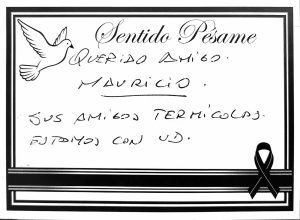 Sentido Pésame
QUERIDO AMIGO.
MAURICIO.
SUS AMIGOS TERMÍCOLAS.
ESTAMOS CON UD.